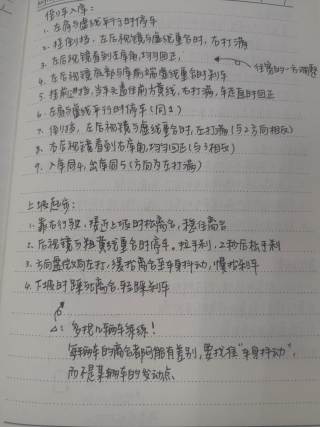 倒车入库：
1. 左肩与虚线平行时停车
2. 挂倒挡，左后视镜与虚线重合时，右打满
3. 左后视镜看到左库角，均匀回正，
往宽的一方调整
4. 左后视镜底部与库前端虚线重合时刹车
5. 挂前进挡，当车头盖住前方黄线，右打满，车走直时回正
6. 右肩与虚线平行时停车（同1）
7. 倒挡，右后视镜与虚线重合时，左打满（与2方向相反）
8. 右后视镜看到右库角，均匀回正（与3相反）
9. 入库同4，出库同5（方向为左打满）
上坡起步：
1. 靠右行驶，接近上坡时松离合，稳住离合
2. 后视镜与粗黄线重合时停车。拉手刹，2秒后松手刹
3. 方向盘微向左打，缓抬离合至车身抖动，慢抬刹车
4. 下坡时踩死离合，轻踩刹车
△：多找几辆车练练！
每辆车的离合都可能有差别，要找住“车身抖动”，
而不是某辆车的发动点